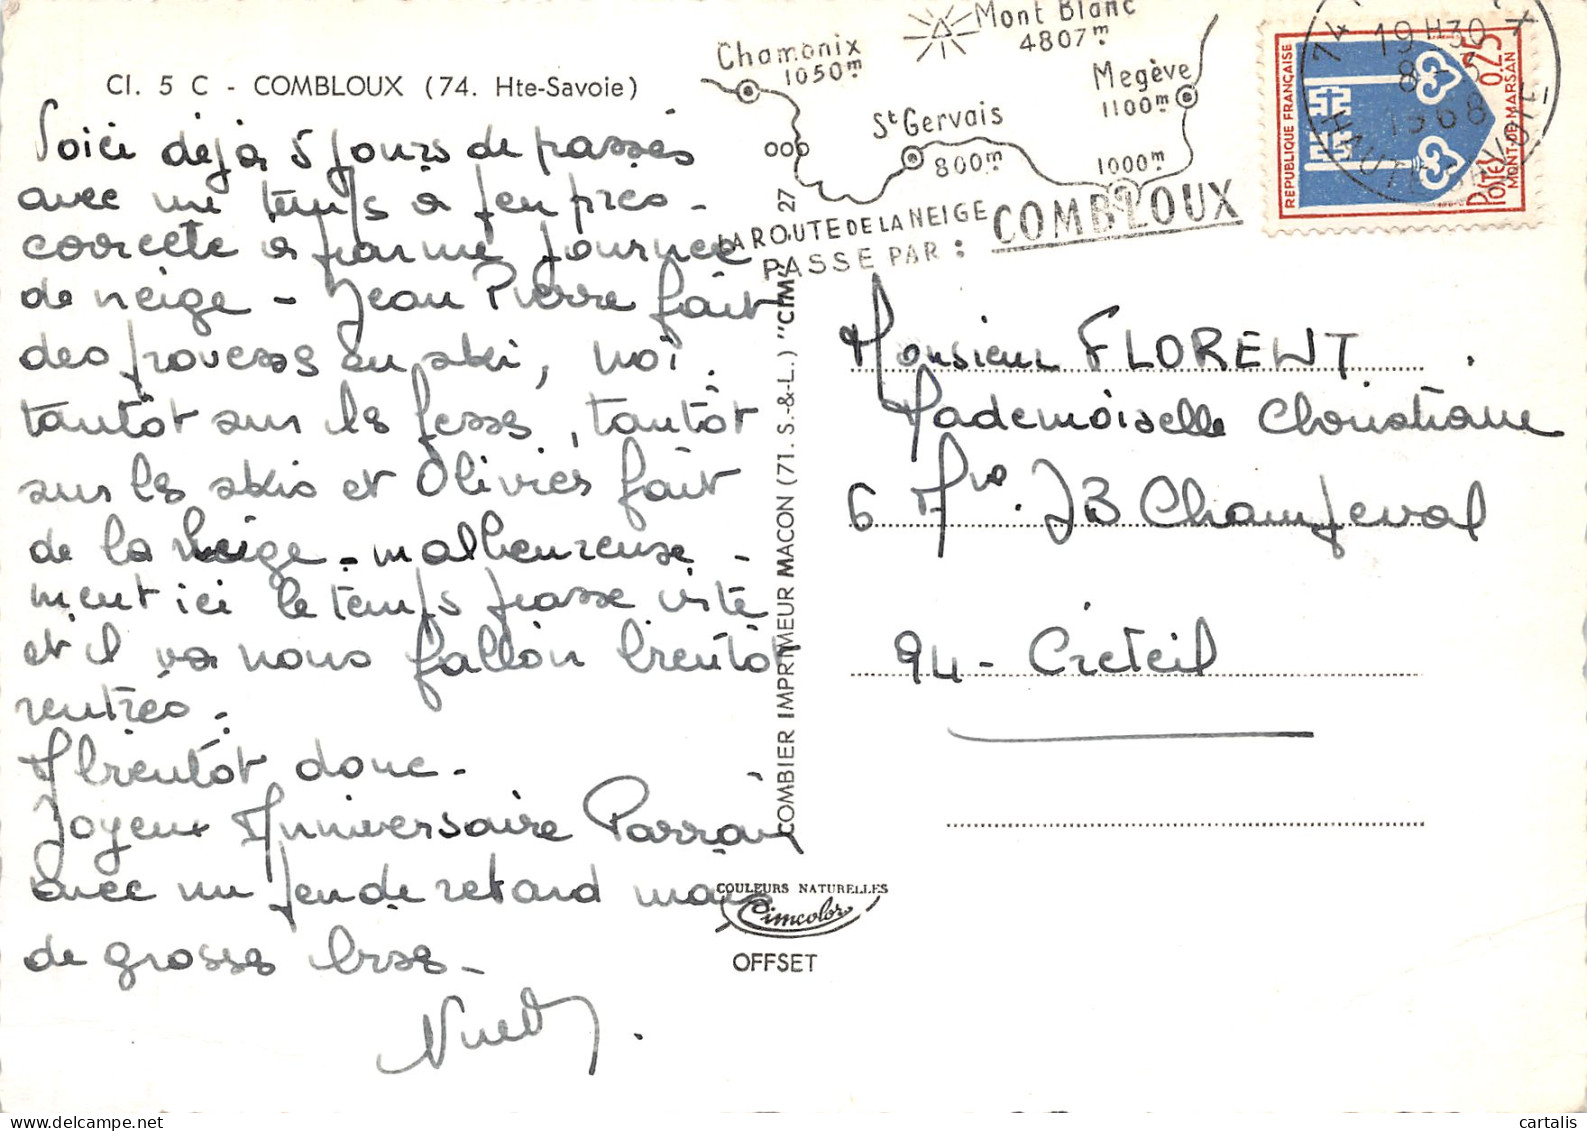 Cl. 5 C - COMBLOUX (74. Hte-Savoie)
Voici déjà 5 jours de passés
avec un temps à peu près -
correcte à par une journée
de neige - Jean Pierre fait
des prouesses en ski, moi
tantôt sur les fesses, tantôt
sur les skis et Olivier fait
de la neige - malheureuse -
ment ici le temps passe vite
et il va nous falloir bientôt
rentrer.
A bientôt donc -
Joyeux Anniversaire Parrain
avec un peu de retard mais
de grosses bises -
COMBIER IMPRIMEUR MACON (71. S.-&-L.) "CIM" 27
COULEURS NATURELLES
Cimcolor
OFFSET
Chamonix
1050m
Mont Blanc
4807m
Megève
1100m
St Gervais
800m
1000m
LA ROUTE DE LA NEIGE
PASSE PAR :
COMBLOUX
19 H30
8 - 3
1968
HAUTE SAVOIE
REPUBLIQUE FRANÇAISE
0,25
Postes
MONT-DE-MARSAN
Monsieur FLORENT
Mademoiselle Christiane
6 JB Champeval
94 - Créteil
cartalis